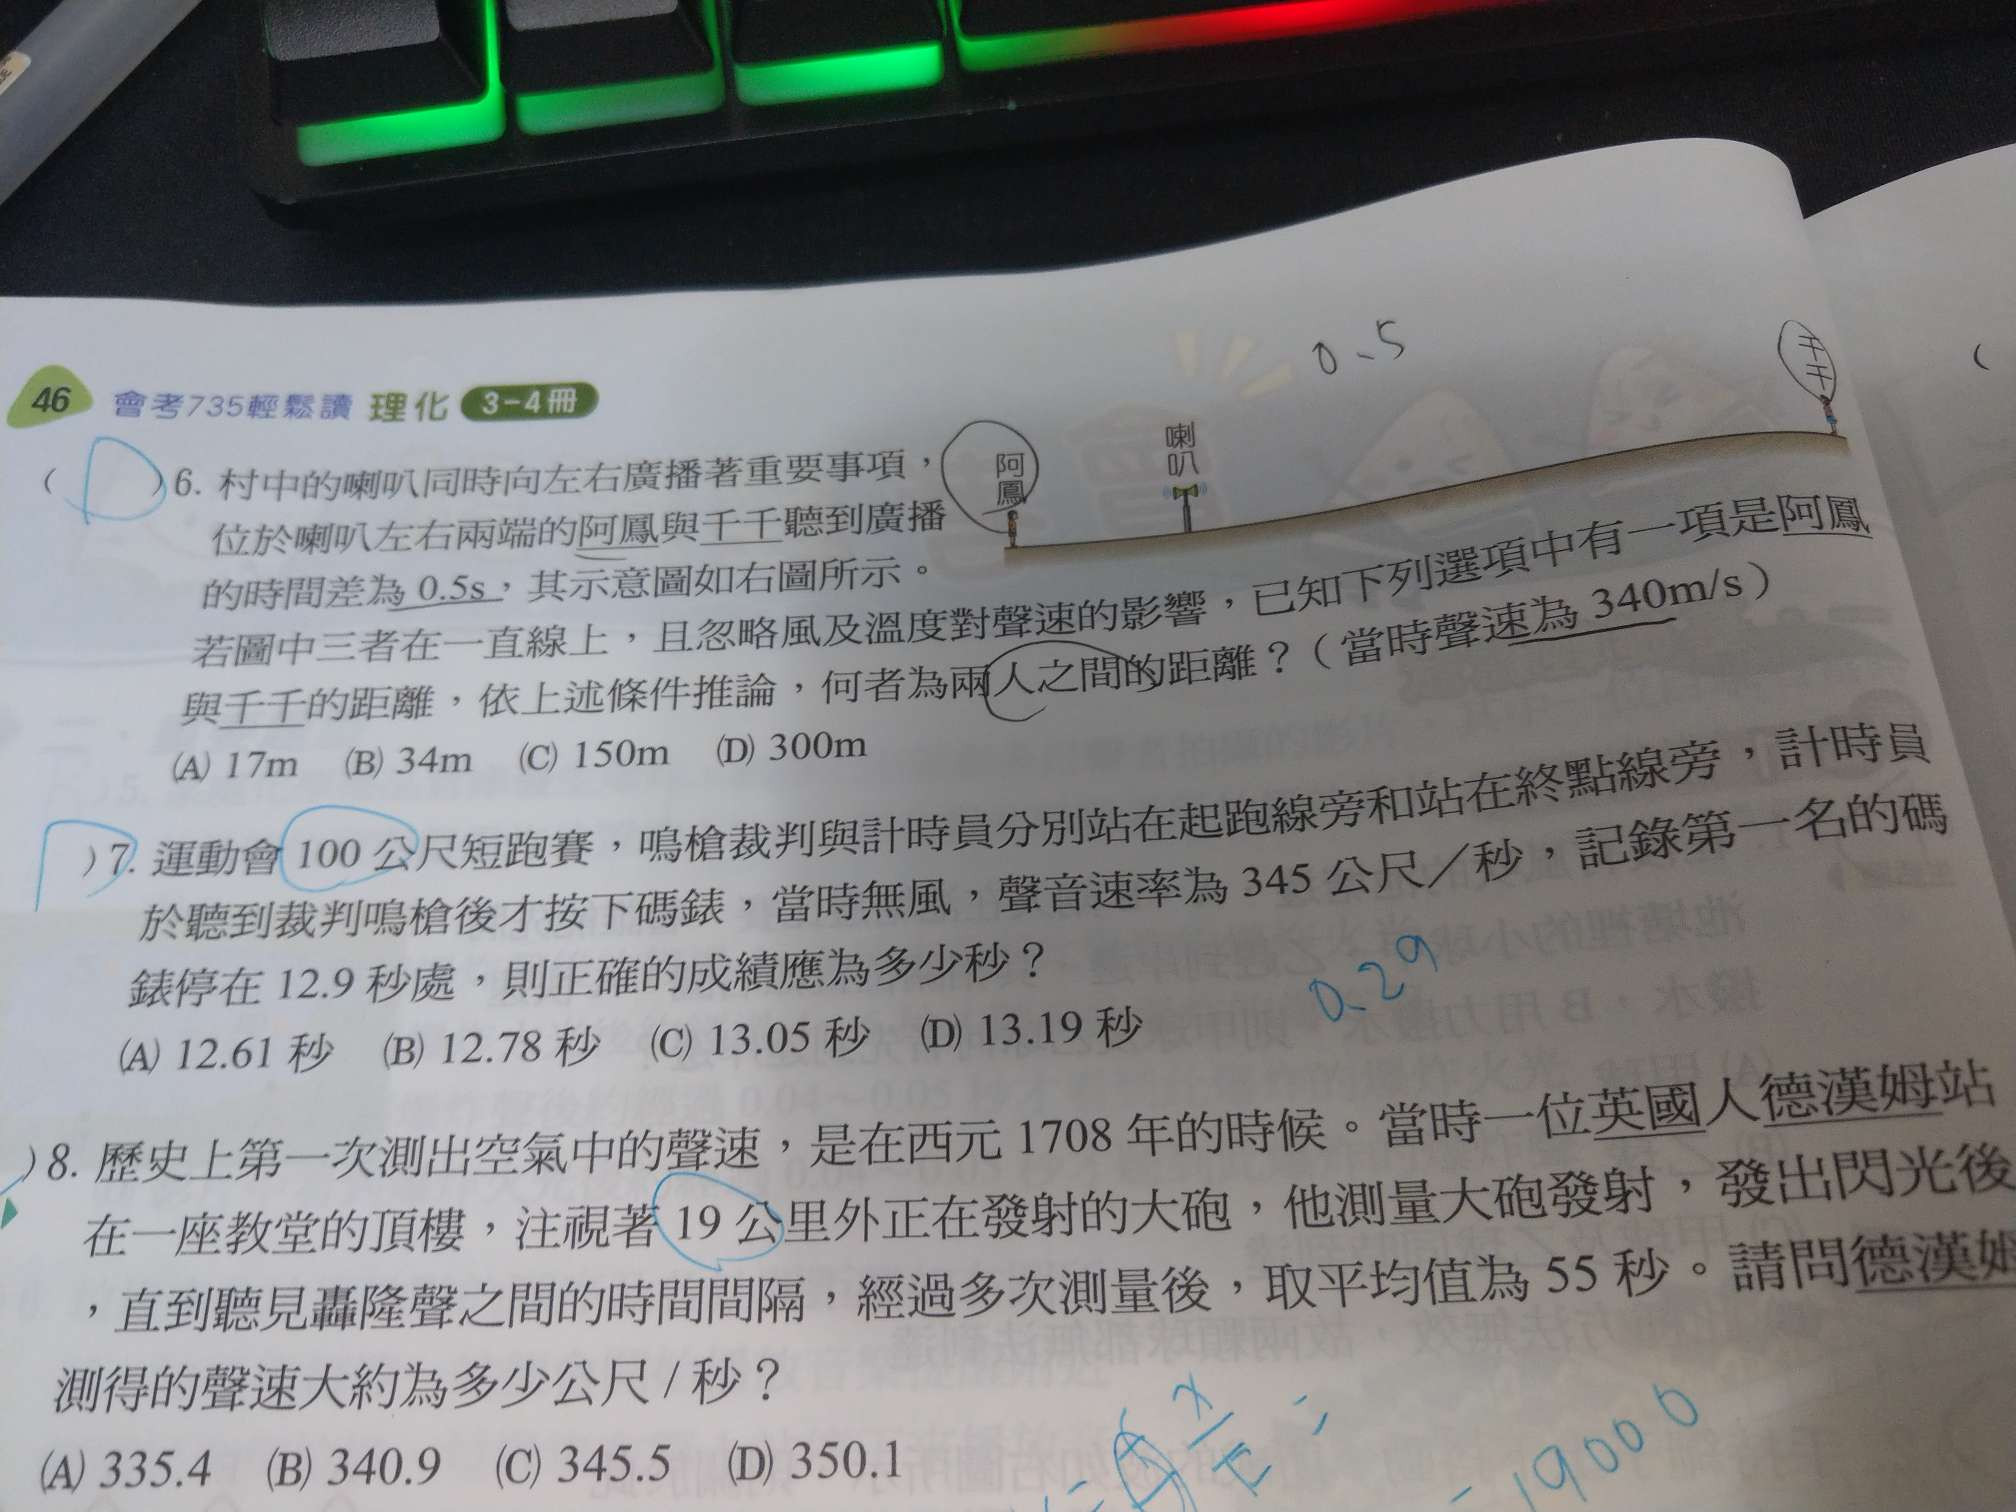 0.5
46 會考735輕鬆讀 理化 3-4冊
千千
喇叭
阿鳳
( D )6. 村中的喇叭同時向左右廣播著重要事項，
位於喇叭左右兩端的阿鳳與千千聽到廣播
的時間差為 0.5s，其示意圖如右圖所示。
若圖中三者在一直線上，且忽略風及溫度對聲速的影響，已知下列選項中有一項是阿鳳
與千千的距離，依上述條件推論，何者為兩人之間的距離？（當時聲速為 340m/s）
(A) 17m (B) 34m (C) 150m (D) 300m
)7. 運動會 100 公尺短跑賽，鳴槍裁判與計時員分別站在起跑線旁和站在終點線旁，計時員
於聽到裁判鳴槍後才按下碼錶，當時無風，聲音速率為 345 公尺／秒，記錄第一名的碼
錶停在 12.9 秒處，則正確的成績應為多少秒？
0.29
(A) 12.61 秒 (B) 12.78 秒 (C) 13.05 秒 (D) 13.19 秒
)8. 歷史上第一次測出空氣中的聲速，是在西元 1708 年的時候。當時一位英國人德漢姆站
在一座教堂的頂樓，注視著 19 公里外正在發射的大砲，他測量大砲發射，發出閃光後
，直到聽見轟隆聲之間的時間間隔，經過多次測量後，取平均值為 55 秒。請問德漢姆
測得的聲速大約為多少公尺 / 秒？
(A) 335.4 (B) 340.9 (C) 345.5 (D) 350.1
19000